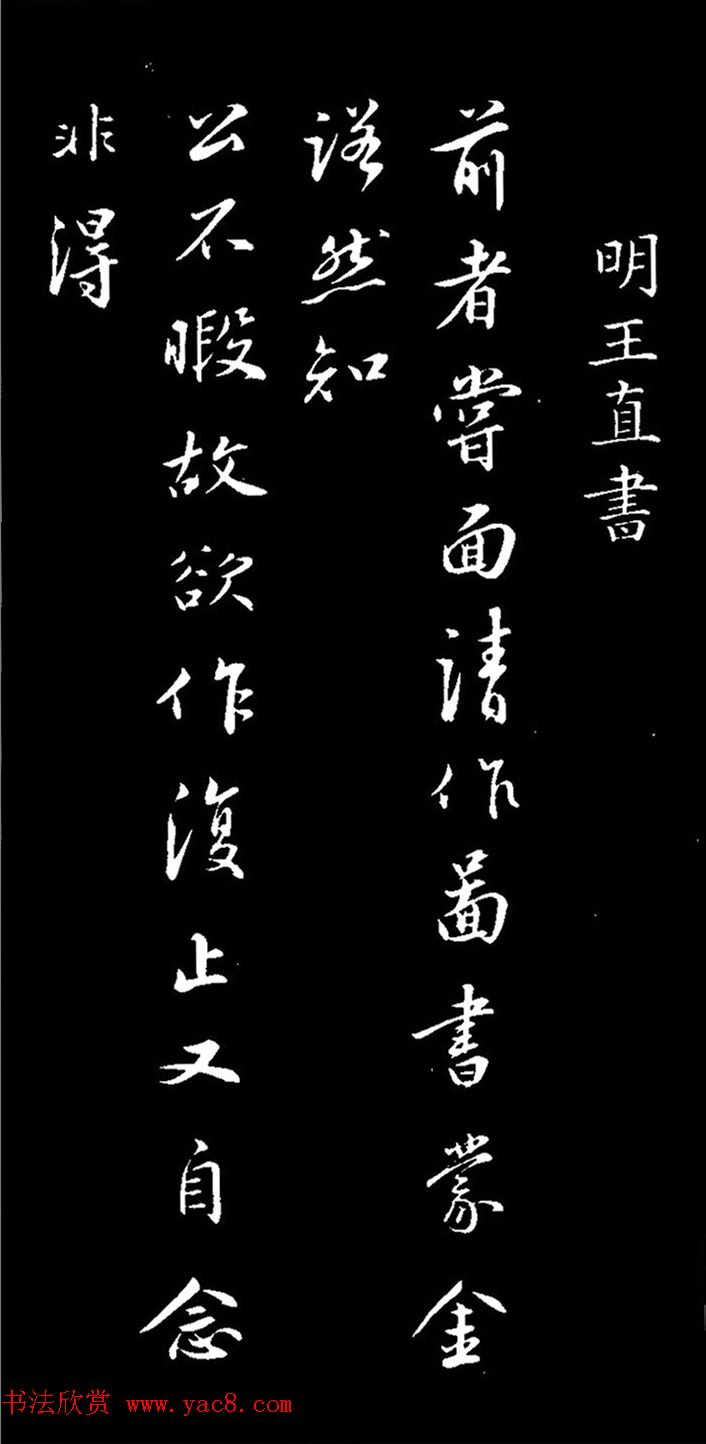 明王直書
前者嘗面請作圖書蒙金
諾然知
公不暇故欲作復止又自念
非得
书法欣赏 www.yac8.com